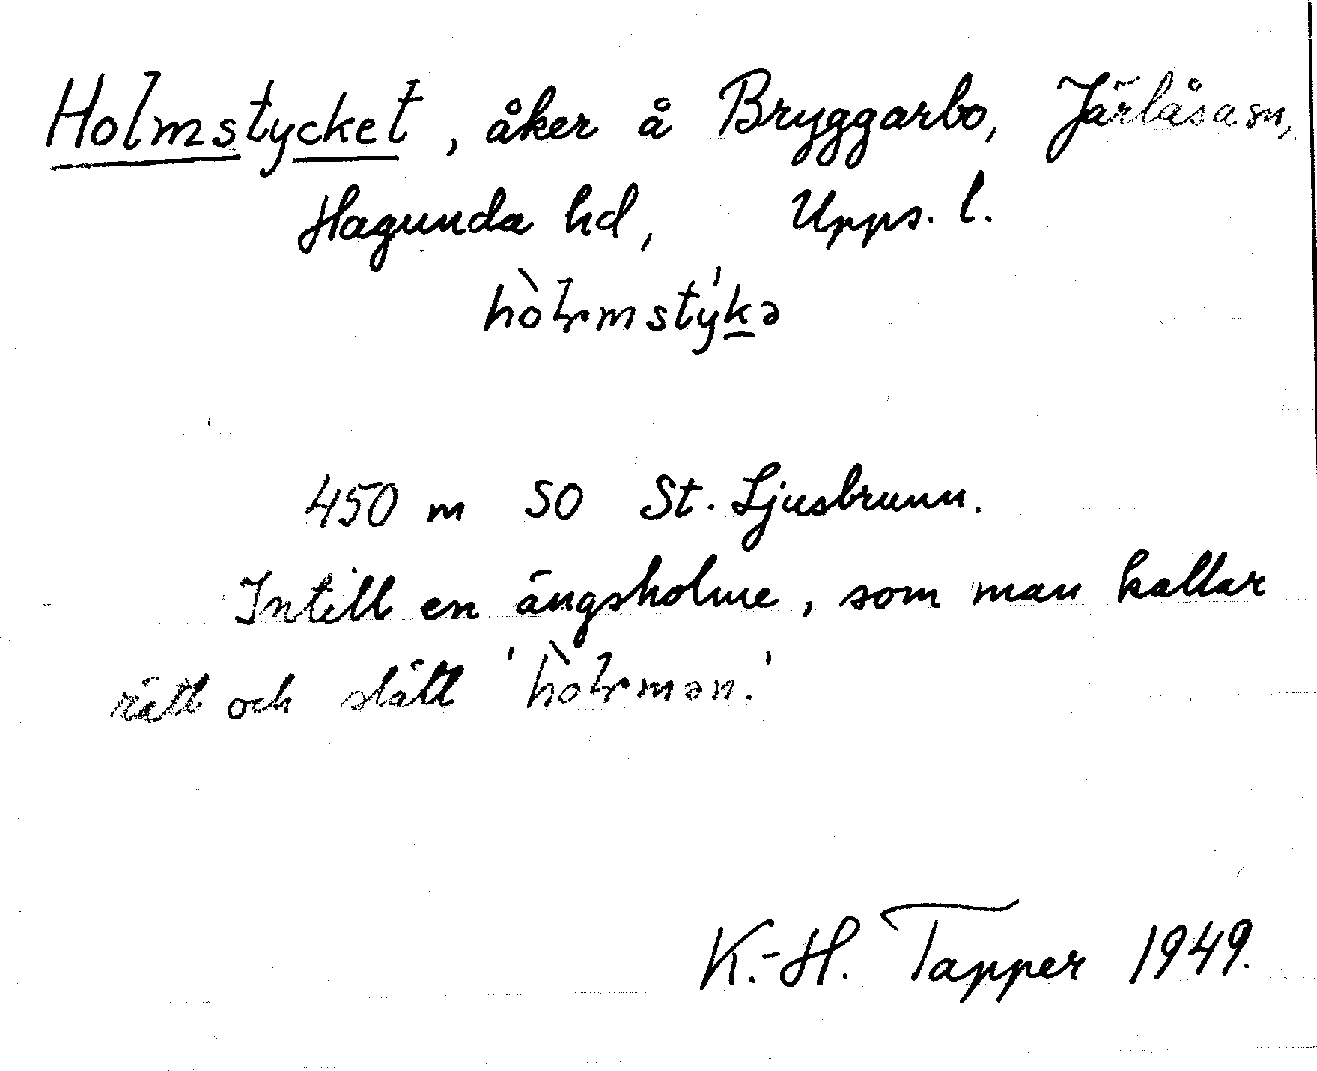 Holmstycket, åker å Bryggarbo, Järlåsa sn,
Hagunda hd, Upps. l.
hòɫmstýkə
450 m SO St. Ljusbrunn.
Intill en ängsholme, som man kallar
rätt och slätt 'hòɫmən.'
K.-H. Tapper 1949.